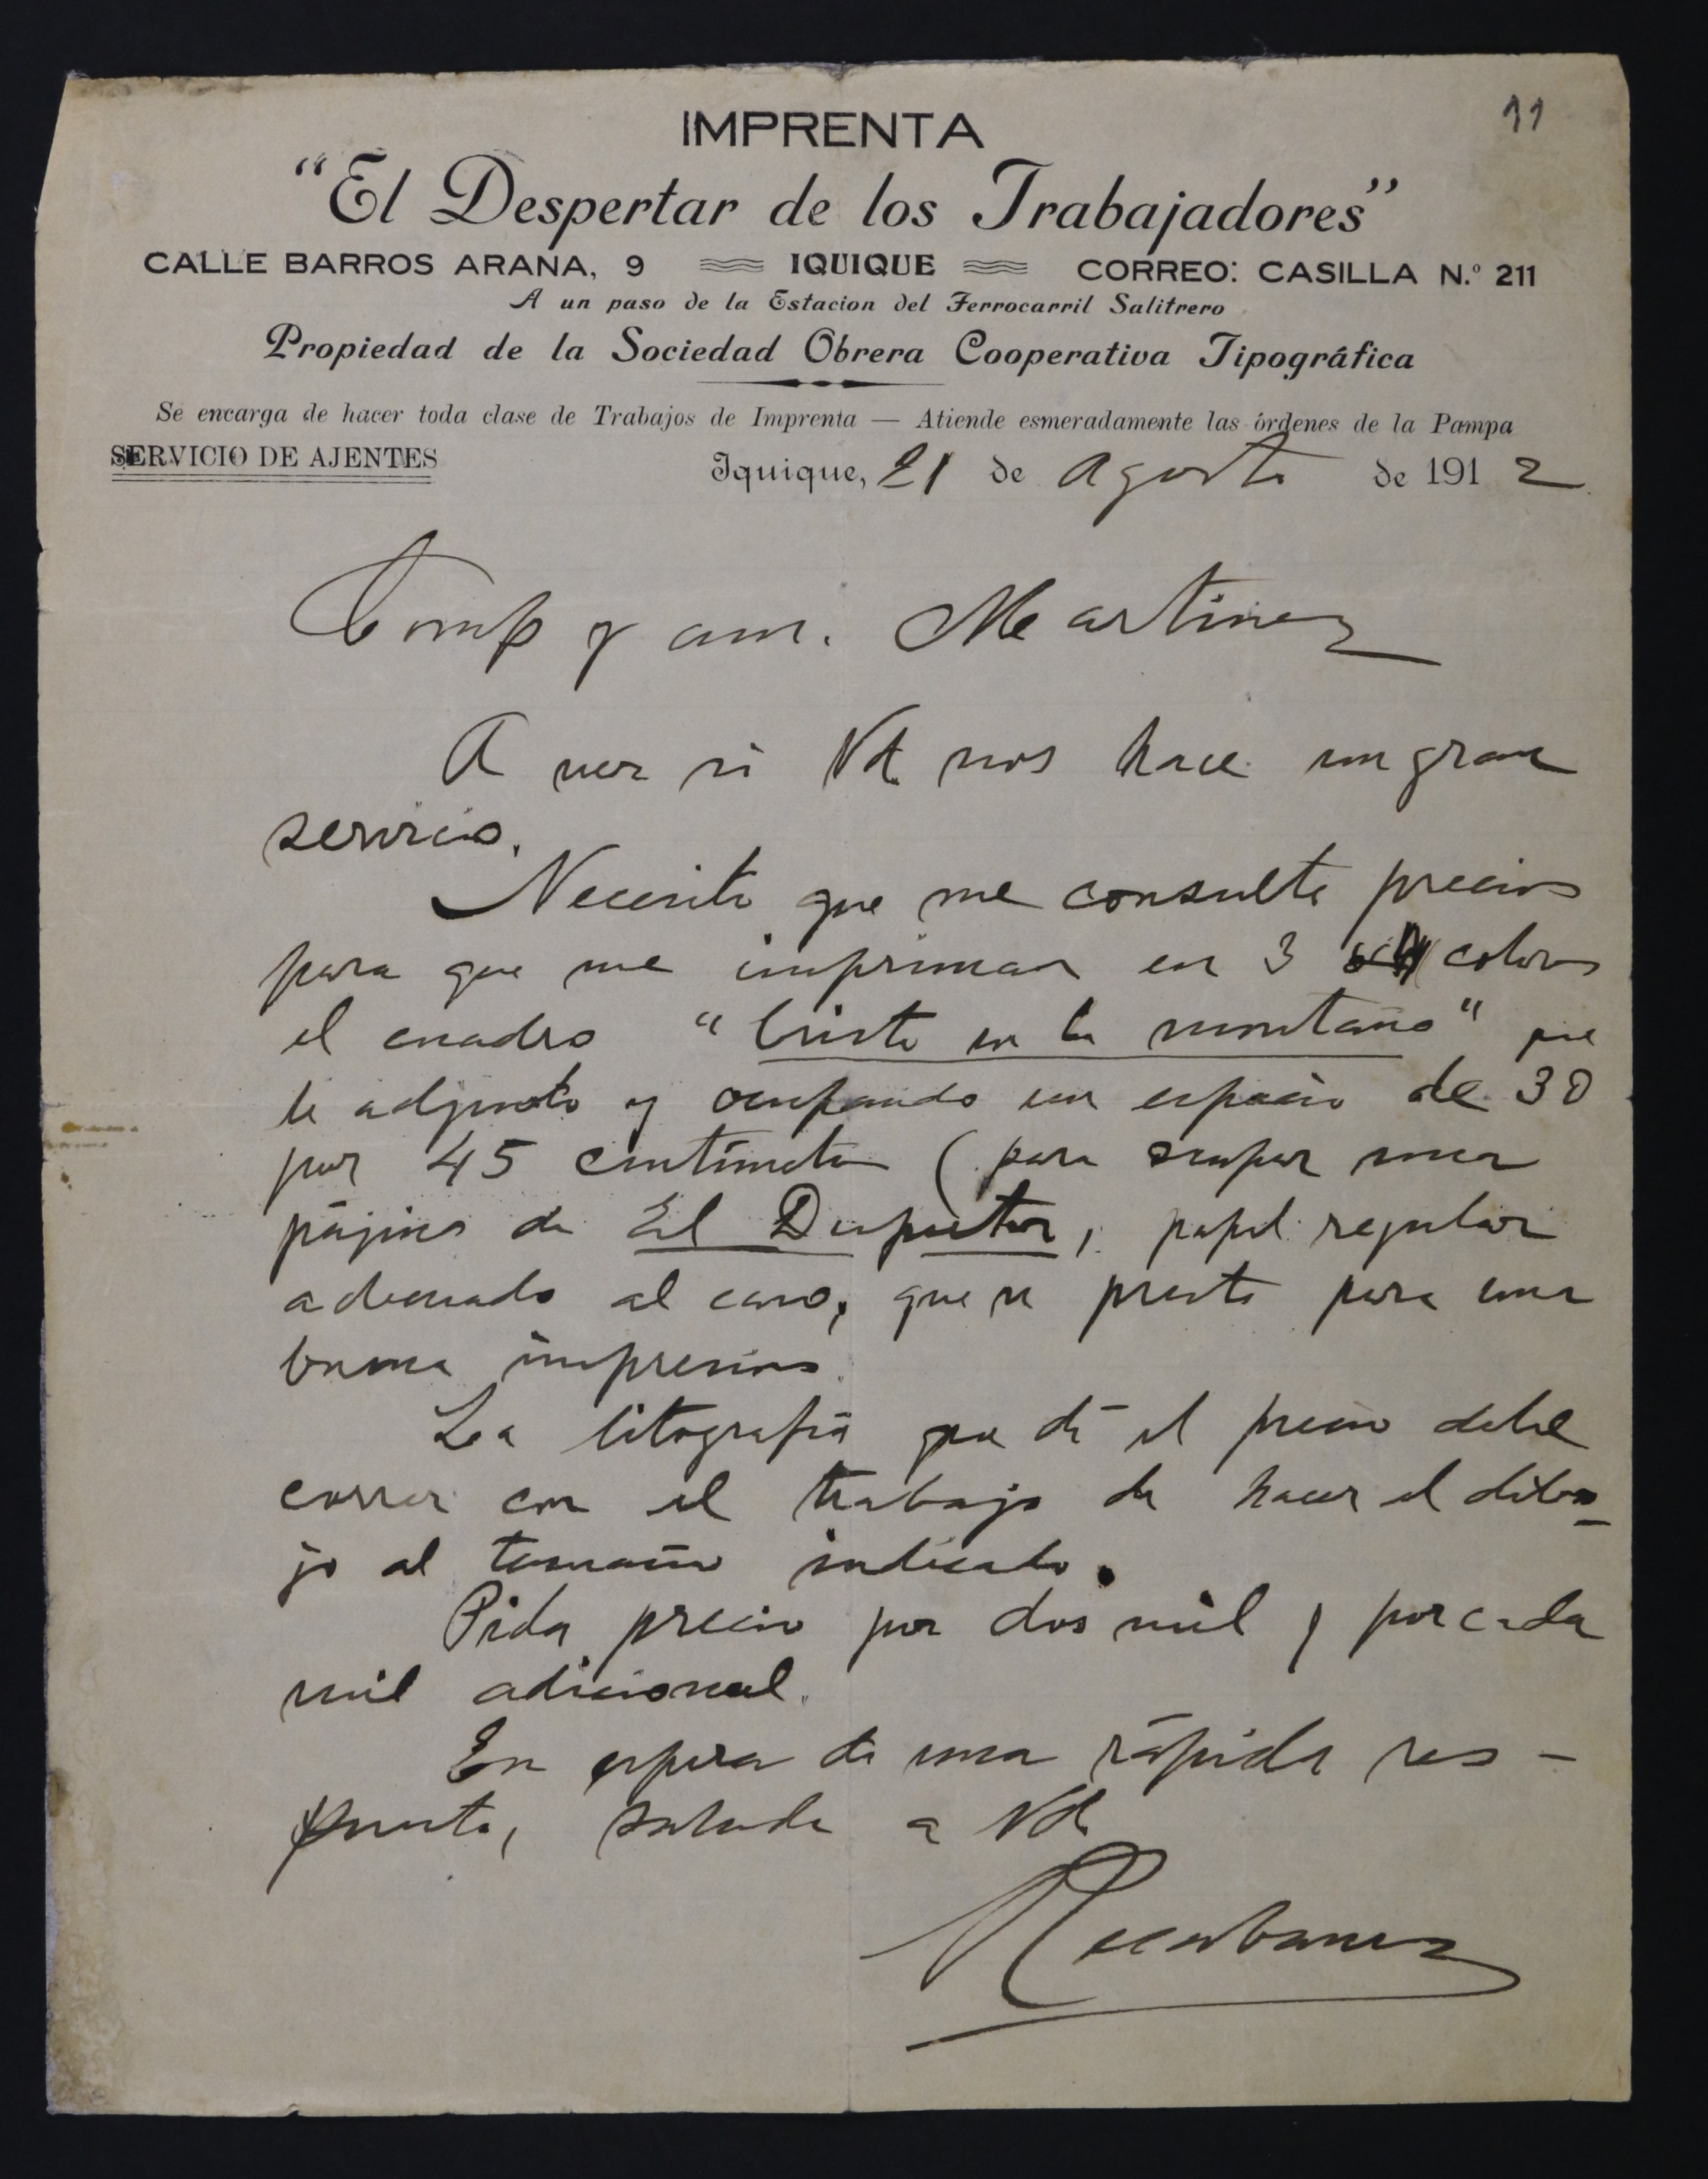 11
IMPRENTA
“El Despertar de los Trabajadores”
CALLE BARROS ARANA, 9 IQUIQUE CORREO: CASILLA N.º 211
A un paso de la Estacion del Ferrocarril Salitrero
Propiedad de la Sociedad Obrera Cooperativa Tipográfica
Se encarga de hacer toda clase de Trabajos de Imprenta — Atiende esmeradamente las órdenes de la Pampa
SERVICIO DE AJENTES
Iquique, 21 de Agosto de 1912
Comp y am. Martinez
A ver si Vd nos hace un gran
servicio.
Necesito que me consulte precios
para que me impriman en 3 colores
el cuadro "Cristo en la montaña" que
le adjunto y ocupando un espacio de 30
por 45 centímetros (para ocupar una
pájina de El Despertar, papel regular
adecuado al caso, que se preste para una
buena impresion.
La litografía que dé el precio debe
correr con el trabajo de hacer el dibu-
jo al tamaño indicado.
Pida precio por dos mil y por cada
mil adicional.
En espera de una rápida res-
puesta, saluda a Vd
Recabarren